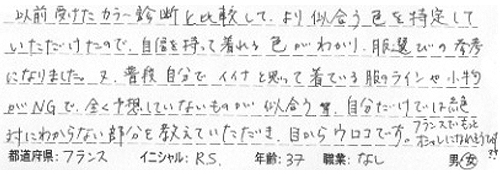 以前受けたカラー診断と比較して、より似合う色を特定して
いただけたので、自信を持って着れる色がわかり、服選びの参考
になりました。又、普段自分でイイナと思って着ている服のラインや小物
がNGで、全く予想していないものが似合う等、自分だけでは絶
対にわからない部分を教えていただき、目からウロコです。フランスでもっと
オシャレになれそうです
都道府県：フランス イニシャル：R.S. 年齢：37 職業：なし 男・女